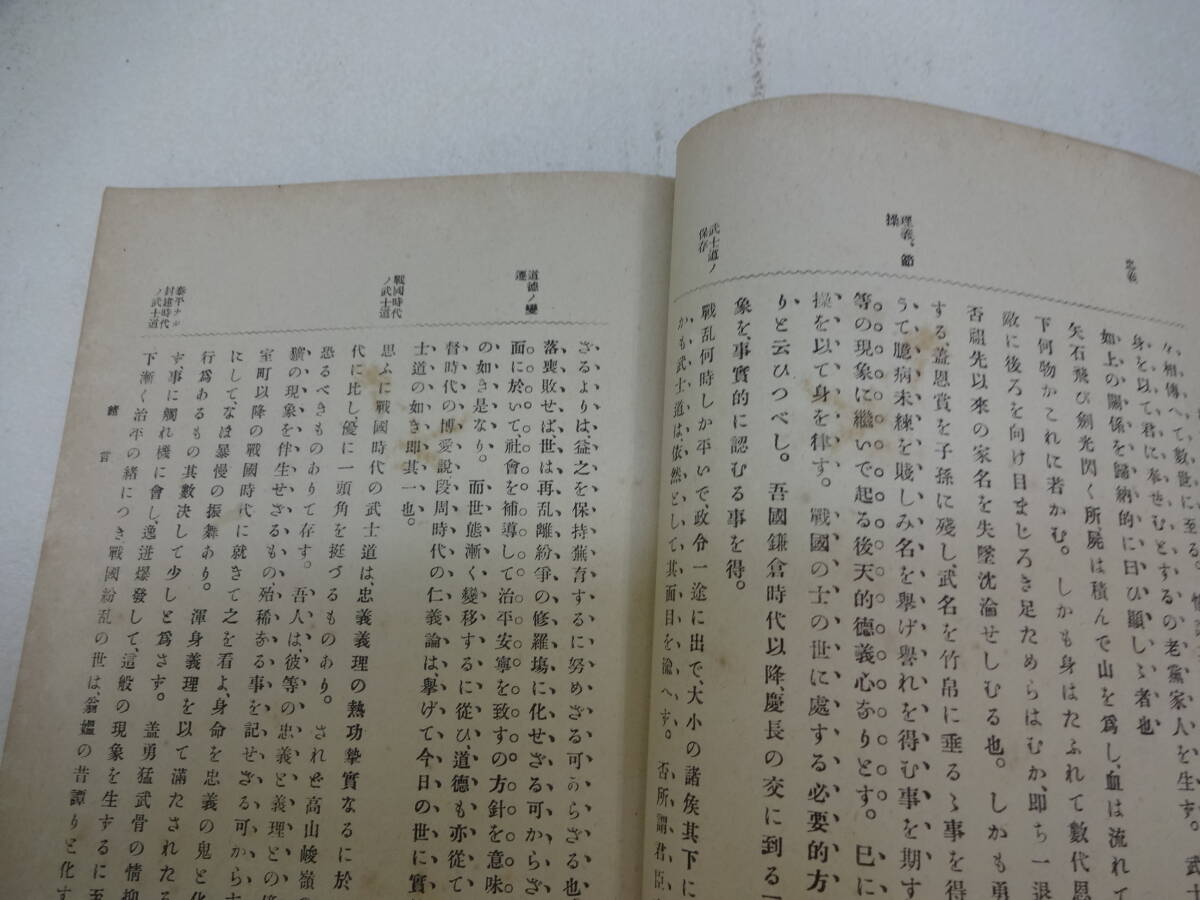 忠義
理義、節
操
武士道ノ
保存
々、相傳へて數世に至る。
身を以て君に奉せむとするの老黨家人を生ず。
如上の關係を歸納的に曰ひ顯しゝ者也
矢石飛び劍光閃く所、屍は積んで山を爲し、血は流れて
下何物かこれに若かむ。しかも身はたふれて數代恩
敵に後ろを向け目まじろき足ためらはむか、即ち一退
否祖先以來の家名を失墜沈淪せしむる也。しかも勇
する、蓋恩賞を子孫に殘し、武名を竹帛に垂るゝ事を得
うて臆病未練を賤しみ名を擧げ譽れを得む事を期す
等の現象に繼いで起る後天的德義心なりとす。巳に
操を以て身を律す。戰國の士の世に處する必要的方
りと云ひつべし。吾國鎌倉時代以降、慶長の交に到る
象を、事實的に認むる事を得。
戰乱何時しか平いで、政令一途に出で、大小の諸侯其下に
かも武士道は、依然として其面目を渝へず。否所謂君臣
道德ノ變
遷
戰國時代
ノ武士道
泰平ナル
封建時代
ノ武士道
ざるよりは、益之を保持蕪育するに努めざる可らざる也
落喪敗せば世は再乱離紛爭の修羅塲に化せざる可からざ
面に於いて、社會を補導して治平安寧を致すの方針を意味
の如き是なり。而世態漸く變移するに從ひ、道德も亦從て
督時代の博愛說、段周時代の仁義論は、擧げて今日の世に實
士道の如き即其一也。
思ふに戰國時代の武士道は、忠義義理の熱功摯實なるに於
代に比し、優に一頭角を挺づるものあり。されど高山峻嶺の
恐るべきものありて存す。吾人は、彼等の忠義と義理との
獷の現象を伴生せざるもの、殆稀なる事を記せざる可からず
室町以降の戰國時代に就きて之を看よ、身命を忠義の鬼と化
にして、なほ暴慢の振舞あり。渾身義理を以て滿たされたる
行爲あるもの其數决して少しと爲さず。盖勇猛武骨の情抑
す、事に觸れ機に會し、逸迸爆發して、這般の現象を生するに至
下漸く治平の緒につき戰國紛乱の世は、翁媼の昔譚りと化す
緒言